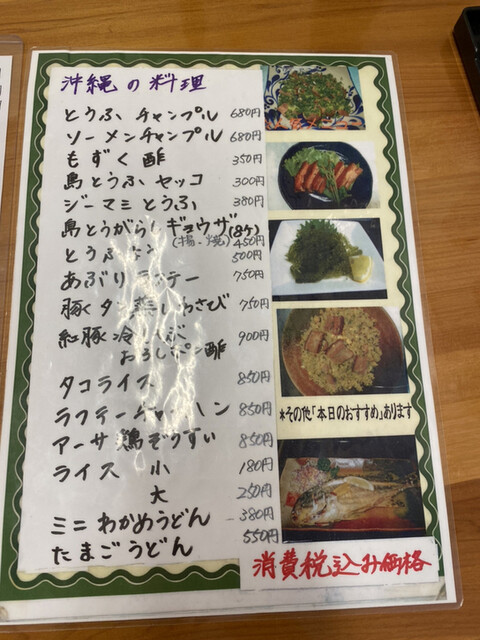 沖縄の料理
とうふ チャンプル 680円
ソーメンチャンプル 680円
もずく酢 350円
島とうふ ヤッコ 300円
ジーマミ とうふ 380円
島とうがらしギョウザ(8ケ)
(揚・焼) 450円
とうふ 500円
あぶり ラフテー 750円
豚タン わさび 750円
紅豚 冷しゃぶ 900円
おろしポン酢
タコライス 850円
ラフテーチャーハン 850円
アーサ 鶏ぞうすい 850円
ライス 小 180円
大 250円
ミニ わかめうどん 380円
たまごうどん 550円
*その他「本日のおすすめ」あります
消費税込み価格